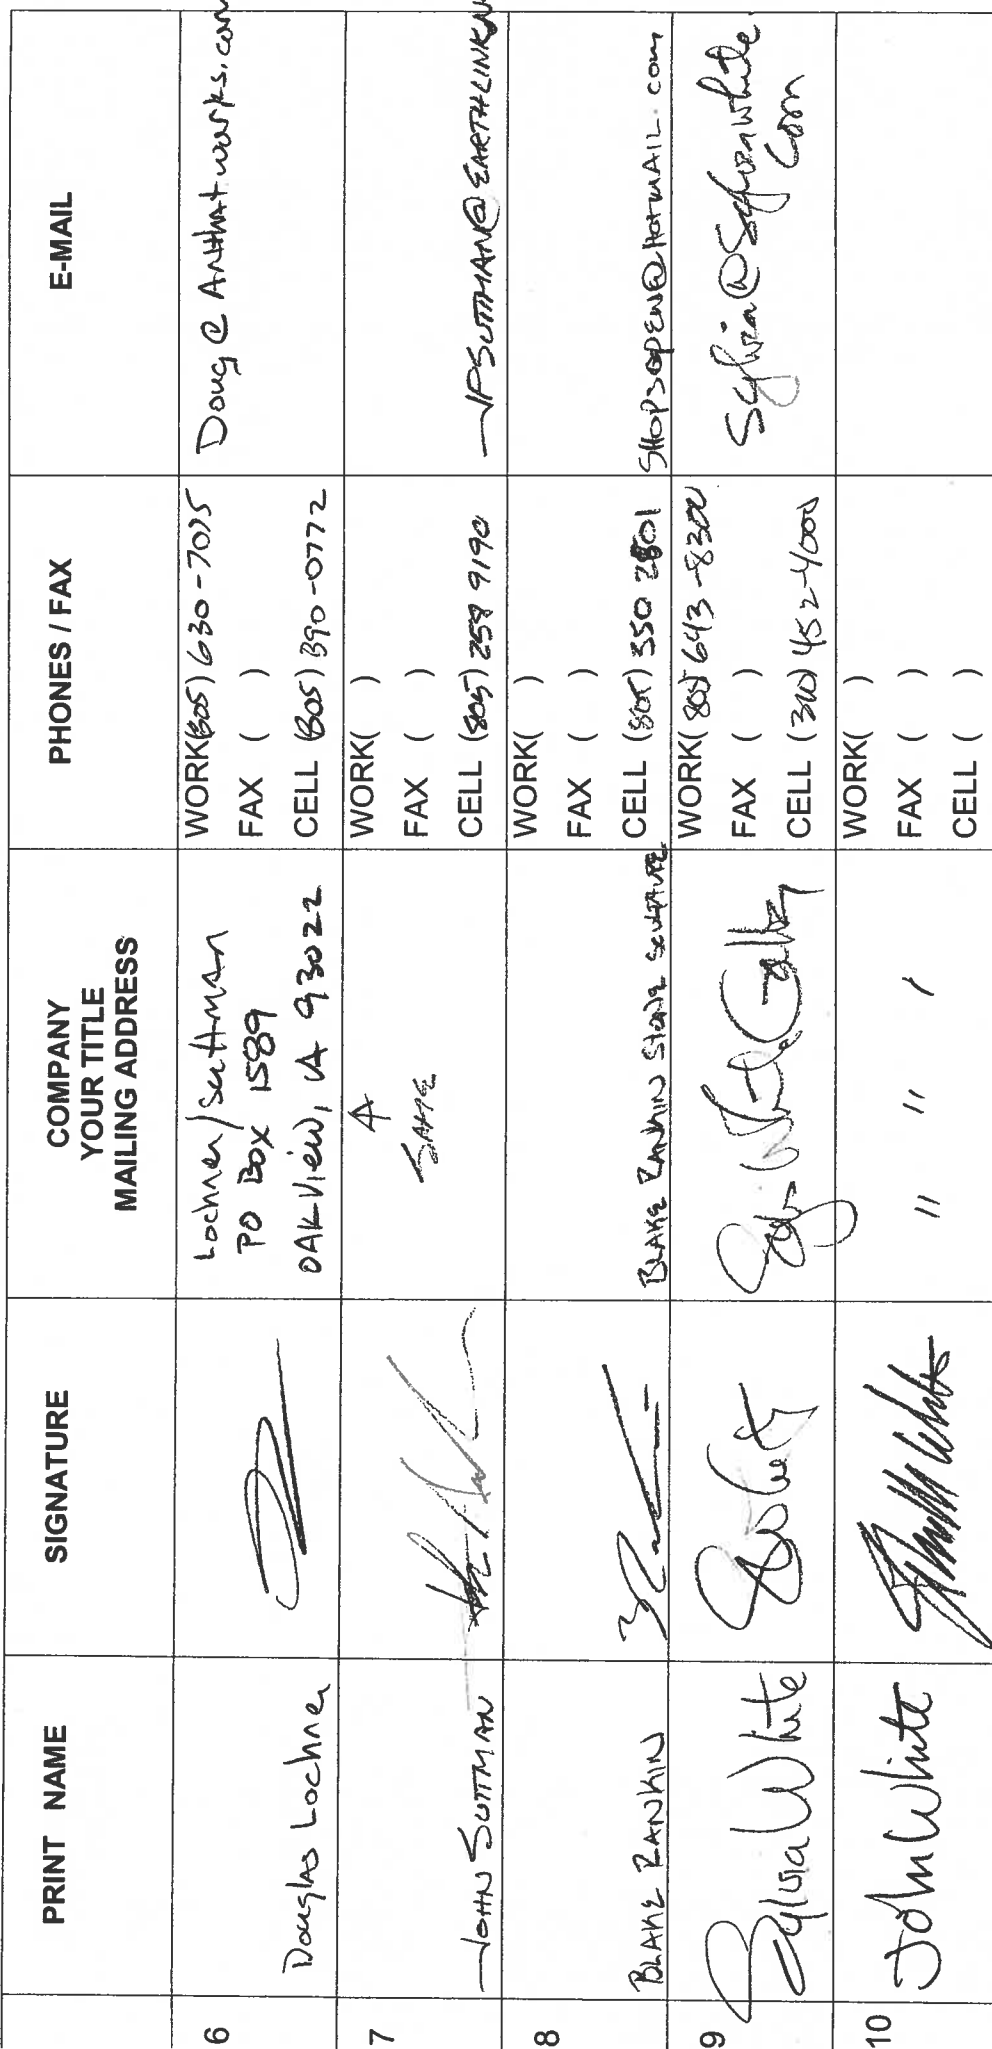 PRINT NAME
SIGNATURE
COMPANY
YOUR TITLE
MAILING ADDRESS
PHONES / FAX
E-MAIL
6
Douglas Lochner
Lochner/Suttman
PO BOX 1589
OAK View, CA 93022
WORK(805) 630-7075
FAX ( )
CELL (805) 390-0772
Doug@
7
JOHN SUTTMAN
SAME
WORK( )
FAX ( )
CELL (805) 259 9190
JPSUTTMAN@EARTHLINK
8
BLAKE RANKIN
BLAKE RANKIN STONE SCULPTURE
WORK( )
FAX ( )
CELL (805) 350
SHOPSOPEN@HOTMAIL.com
9
Sylvia White
Sylvia White Gallery
WORK(805) 643-8300
FAX ( )
CELL (310) 452-4000
Sylvia@Sylviawhite.
com
10
John White
" " "
WORK( )
FAX ( )
CELL ( )